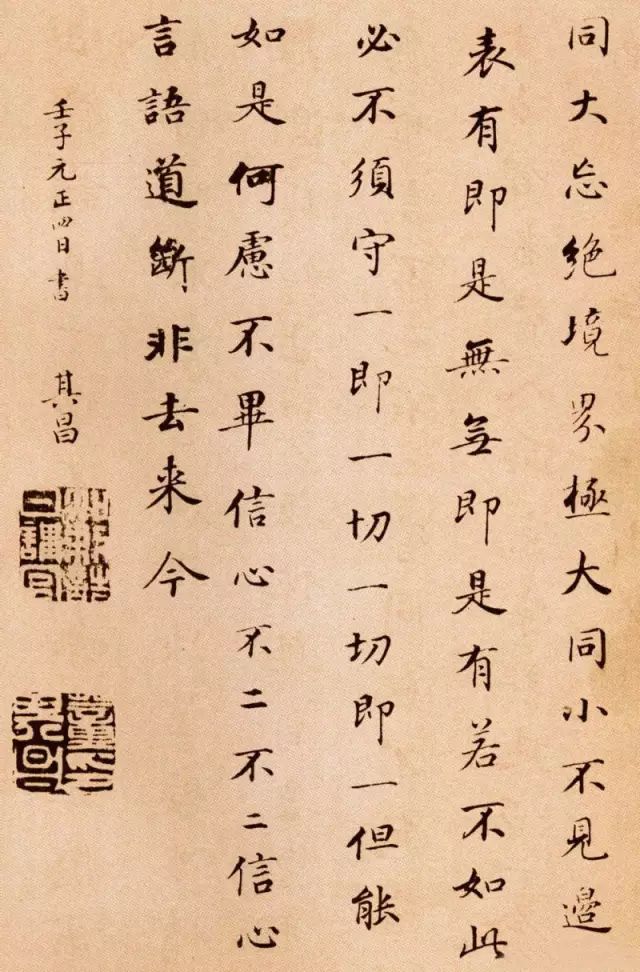 同大忘絶境界極大同小不見邊
表有即是無無即是有若不如此
必不須守一即一切一切即一但能
如是何慮不畢信心不二不二信心
言語道斷非去来今
壬子元正四日書
其昌